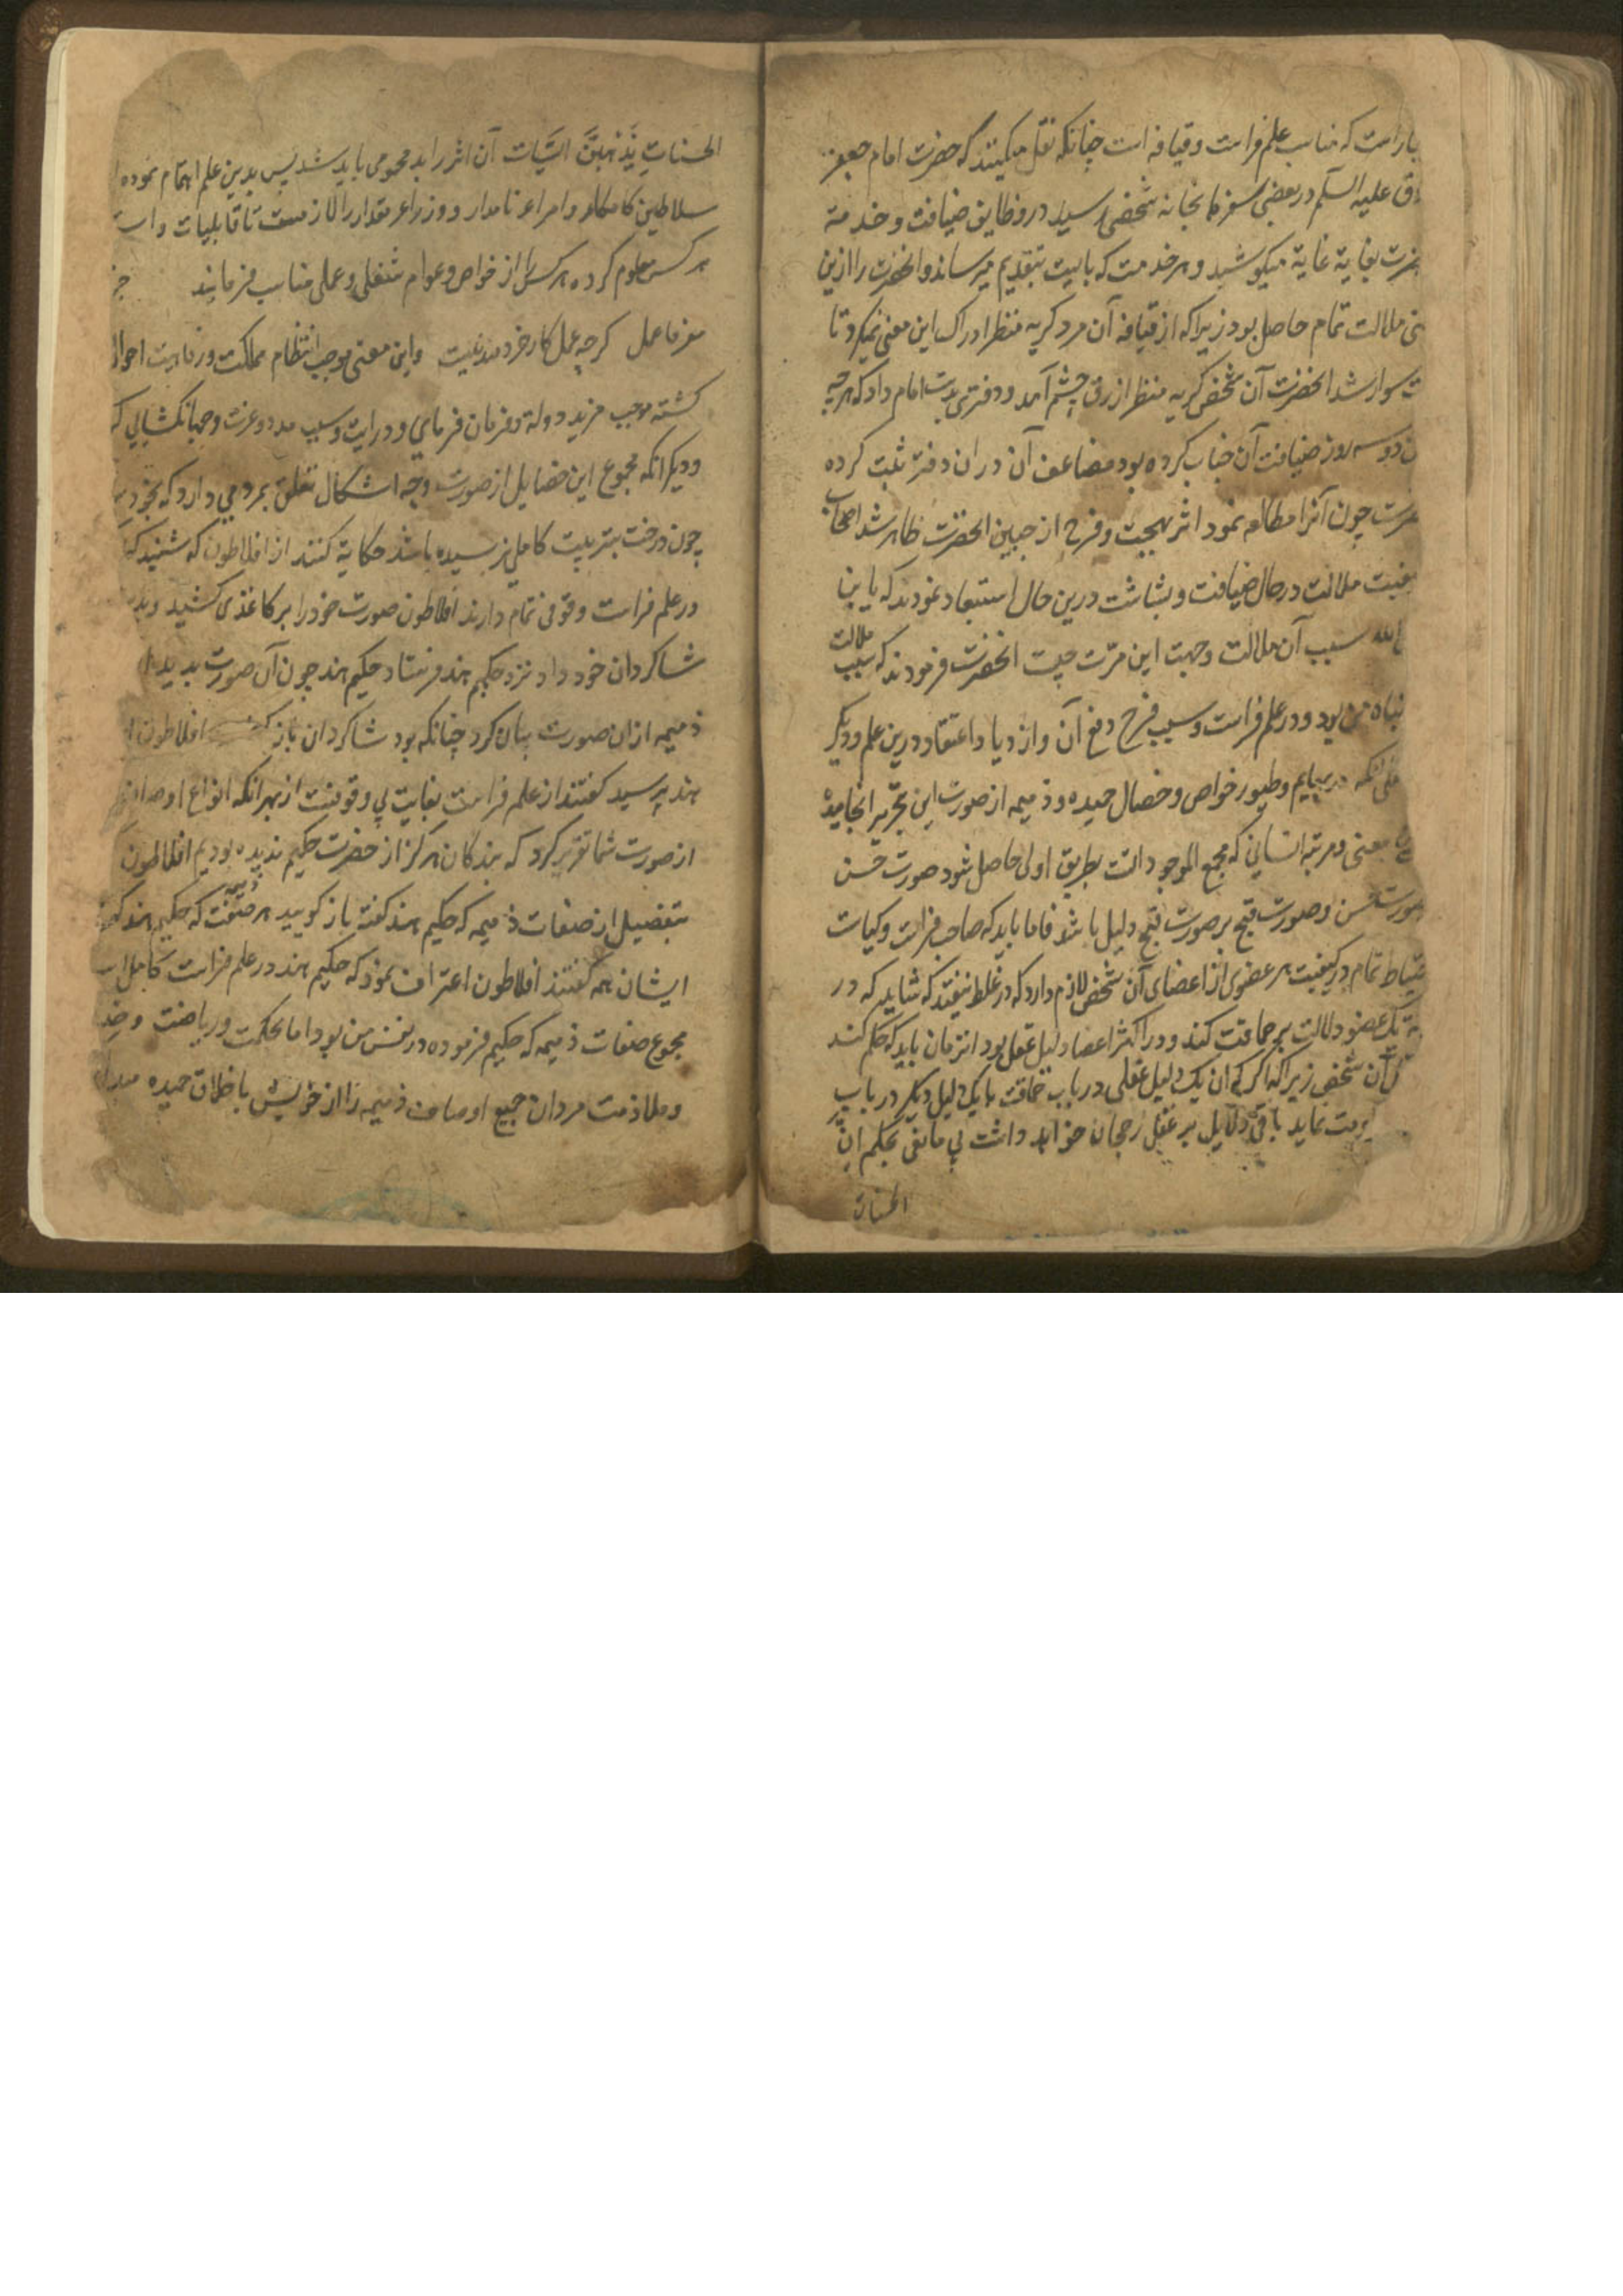 است که مناسب علم فراست و قیافه است چنانکه نقل میکنند که حضرت امام جعفر
علیه السلم در بعضی سفرها بخانه شخصی رسید در وظایف ضیافت و خدمة
بغایة غایة میکوشید و هر خدمت که بایست بتقدیم میرساند و انحضرت را ازین
ملالت تمام حاصل بود زیرا که از قیافه آن مرد کریه منظر ادراک این معنی نمیکرد تا
سوار شد انحضرت آن شخص کریه منظر ازرق چشم آمد و دفتری بدست امام داد که هرچه
دو سه روز ضیافت آن جناب کرده بود مضاعف آن در ان دفتر ثبت کرده
چون آنرا مطالعه نمود اثر بهجت و فرح از جبین انحضرت ظاهر شد اصحاب
ملالت در حال ضیافت و بشاشت درین حال استبعاد نمودند که یا بن
الله سبب آن ملالت و جهت این مسرّت چیست انحضرت فرمودند که سبب ملالت
من بود در علم فراست و سبب فرح دفع آن و ازدیاد اعتقاد درین علم و دیکر
انکه در بهایم و طیور خواص و خصال حمیده و ذمیمه از صورت این بتحریر انجامیده
معنی در مرتبه انسانی که مجمع الموجوداتست بطریق اولی حاصل شود صورت حسن
حسن و صورت قبح بر صورت قبح دلیل باشد فاما باید که صاحب فراست و کیاست
تمام در کیفیت هر عضوی از اعضای آن شخص لازم دارد که در غلط نیفتد که شاید که در
یک عضو دلالت بر حماقت کند و در اکثر اعضا دلیل عقل بود انزمان باید که حکم کند
آن شخص زیرا که اکر ان یک دلیل عقلی در باب حماقت با یک دلیل دیکر در باب
نماید باقی دلایل بر عقل رجحان خواهد داشت پس مابقی بحکم انّ
الحسنات
الحسناتِ یُذْهِبْنَ السَّیِّات آن اثر را بد محو می باید شد پس بدین علم اهتمام نموده
سلاطین کامکار و امراء نامدار و وزراء مقدار را لازمست تا قابلیات و است
هر کس معلوم کرده هر کس را از خواص و عوام شغلی و عملی مناسب فرمایند جز
مفرما عمل کرچه عمل کار خردمند نیست واین معنی موجب انتظام مملکت و رفاهیت احوال
کشته موجب مزید دولة و فرمان فرمای و درایت و سبب مدد و عزت و جهانکشایی
و دیکر انکه مجموع این خصایل از صورت و جه اشکال تعلق بمردمی دارد که
چون درخت بتربیت کاملی نرسیده باشد حکایة کنند از افلاطون که شنید که
در علم فراست وقوفی تمام دارند افلاطون صورت خود را بر کاغذی کشید و
شاکردان خود داد نزد حکیم هند فرستاد حکیم هند چون آن صورت بدید
ذمیمه ازان صورت بیان کرد چنانکه بود شاکردان باز افلاطون
هند پرسید کفتند از علم فراست بغایت بی وقوفست از بهر انکه انواع اوصاف
از صورت شما تقریر کرد که بندکان هرکز از حضرت حکیم ندیده بودیم افلاطون
بتفضیل از صفات ذمیمه که حکیم هند کفته باز کویید هر صفت ذمیمه که حکیم هند
ایشان همه کفتند افلاطون اعتراف نمود که حکیم هند در علم فراست کامل
مجموع صفات ذمیمه که حکیم فرموده در نفس من بود اما بحکمت و ریاضت و
و ملازمت مردان جمیع اوصاف ذمیمه را از خویش باخلاق حمیده